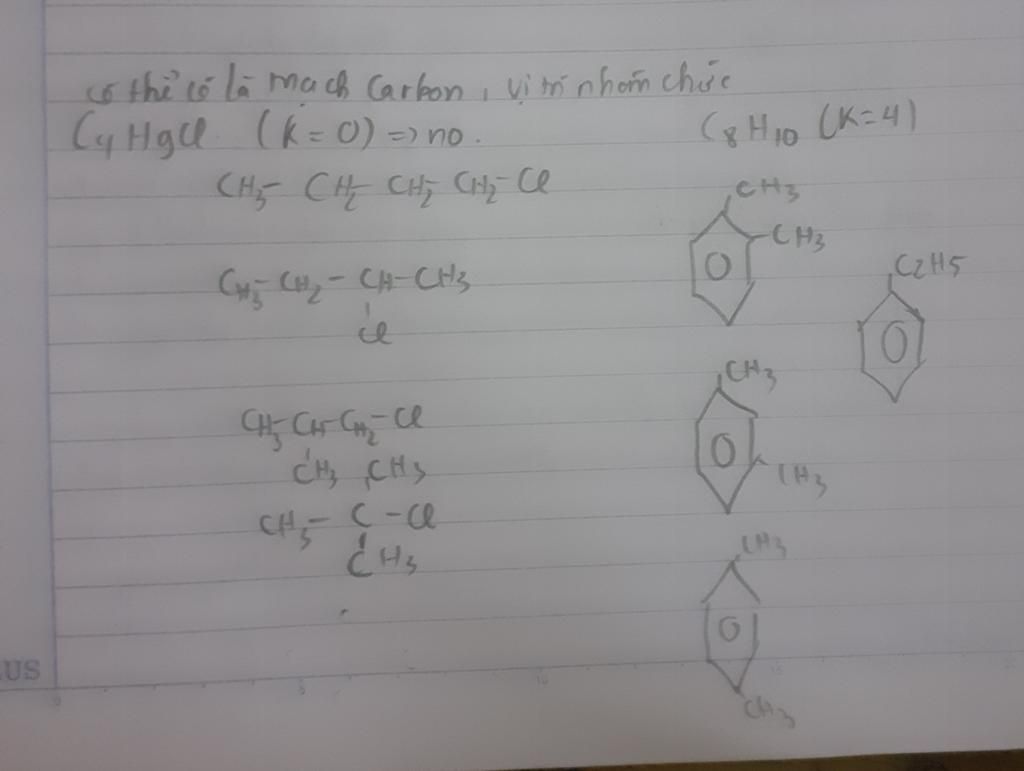 có thể có là mạch Carbon, vị trí nhóm chức
C4H9Cl (k=0) => no.
CH3- CH2- CH2- CH2-Cl
CH3- CH2 - CH-CH3
Cl
CH3-CH-CH2-Cl
CH3
CH3
CH3- C -Cl
CH3
C8H10 (k=4)
CH3
CH3
C2H5
CH3
CH3
CH3
CH3
US
0 5 10 15